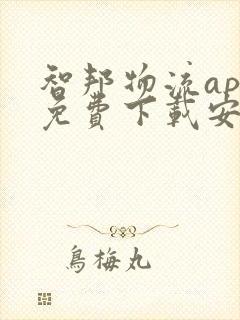 智邦物流ap
免費下載安
烏梅丸